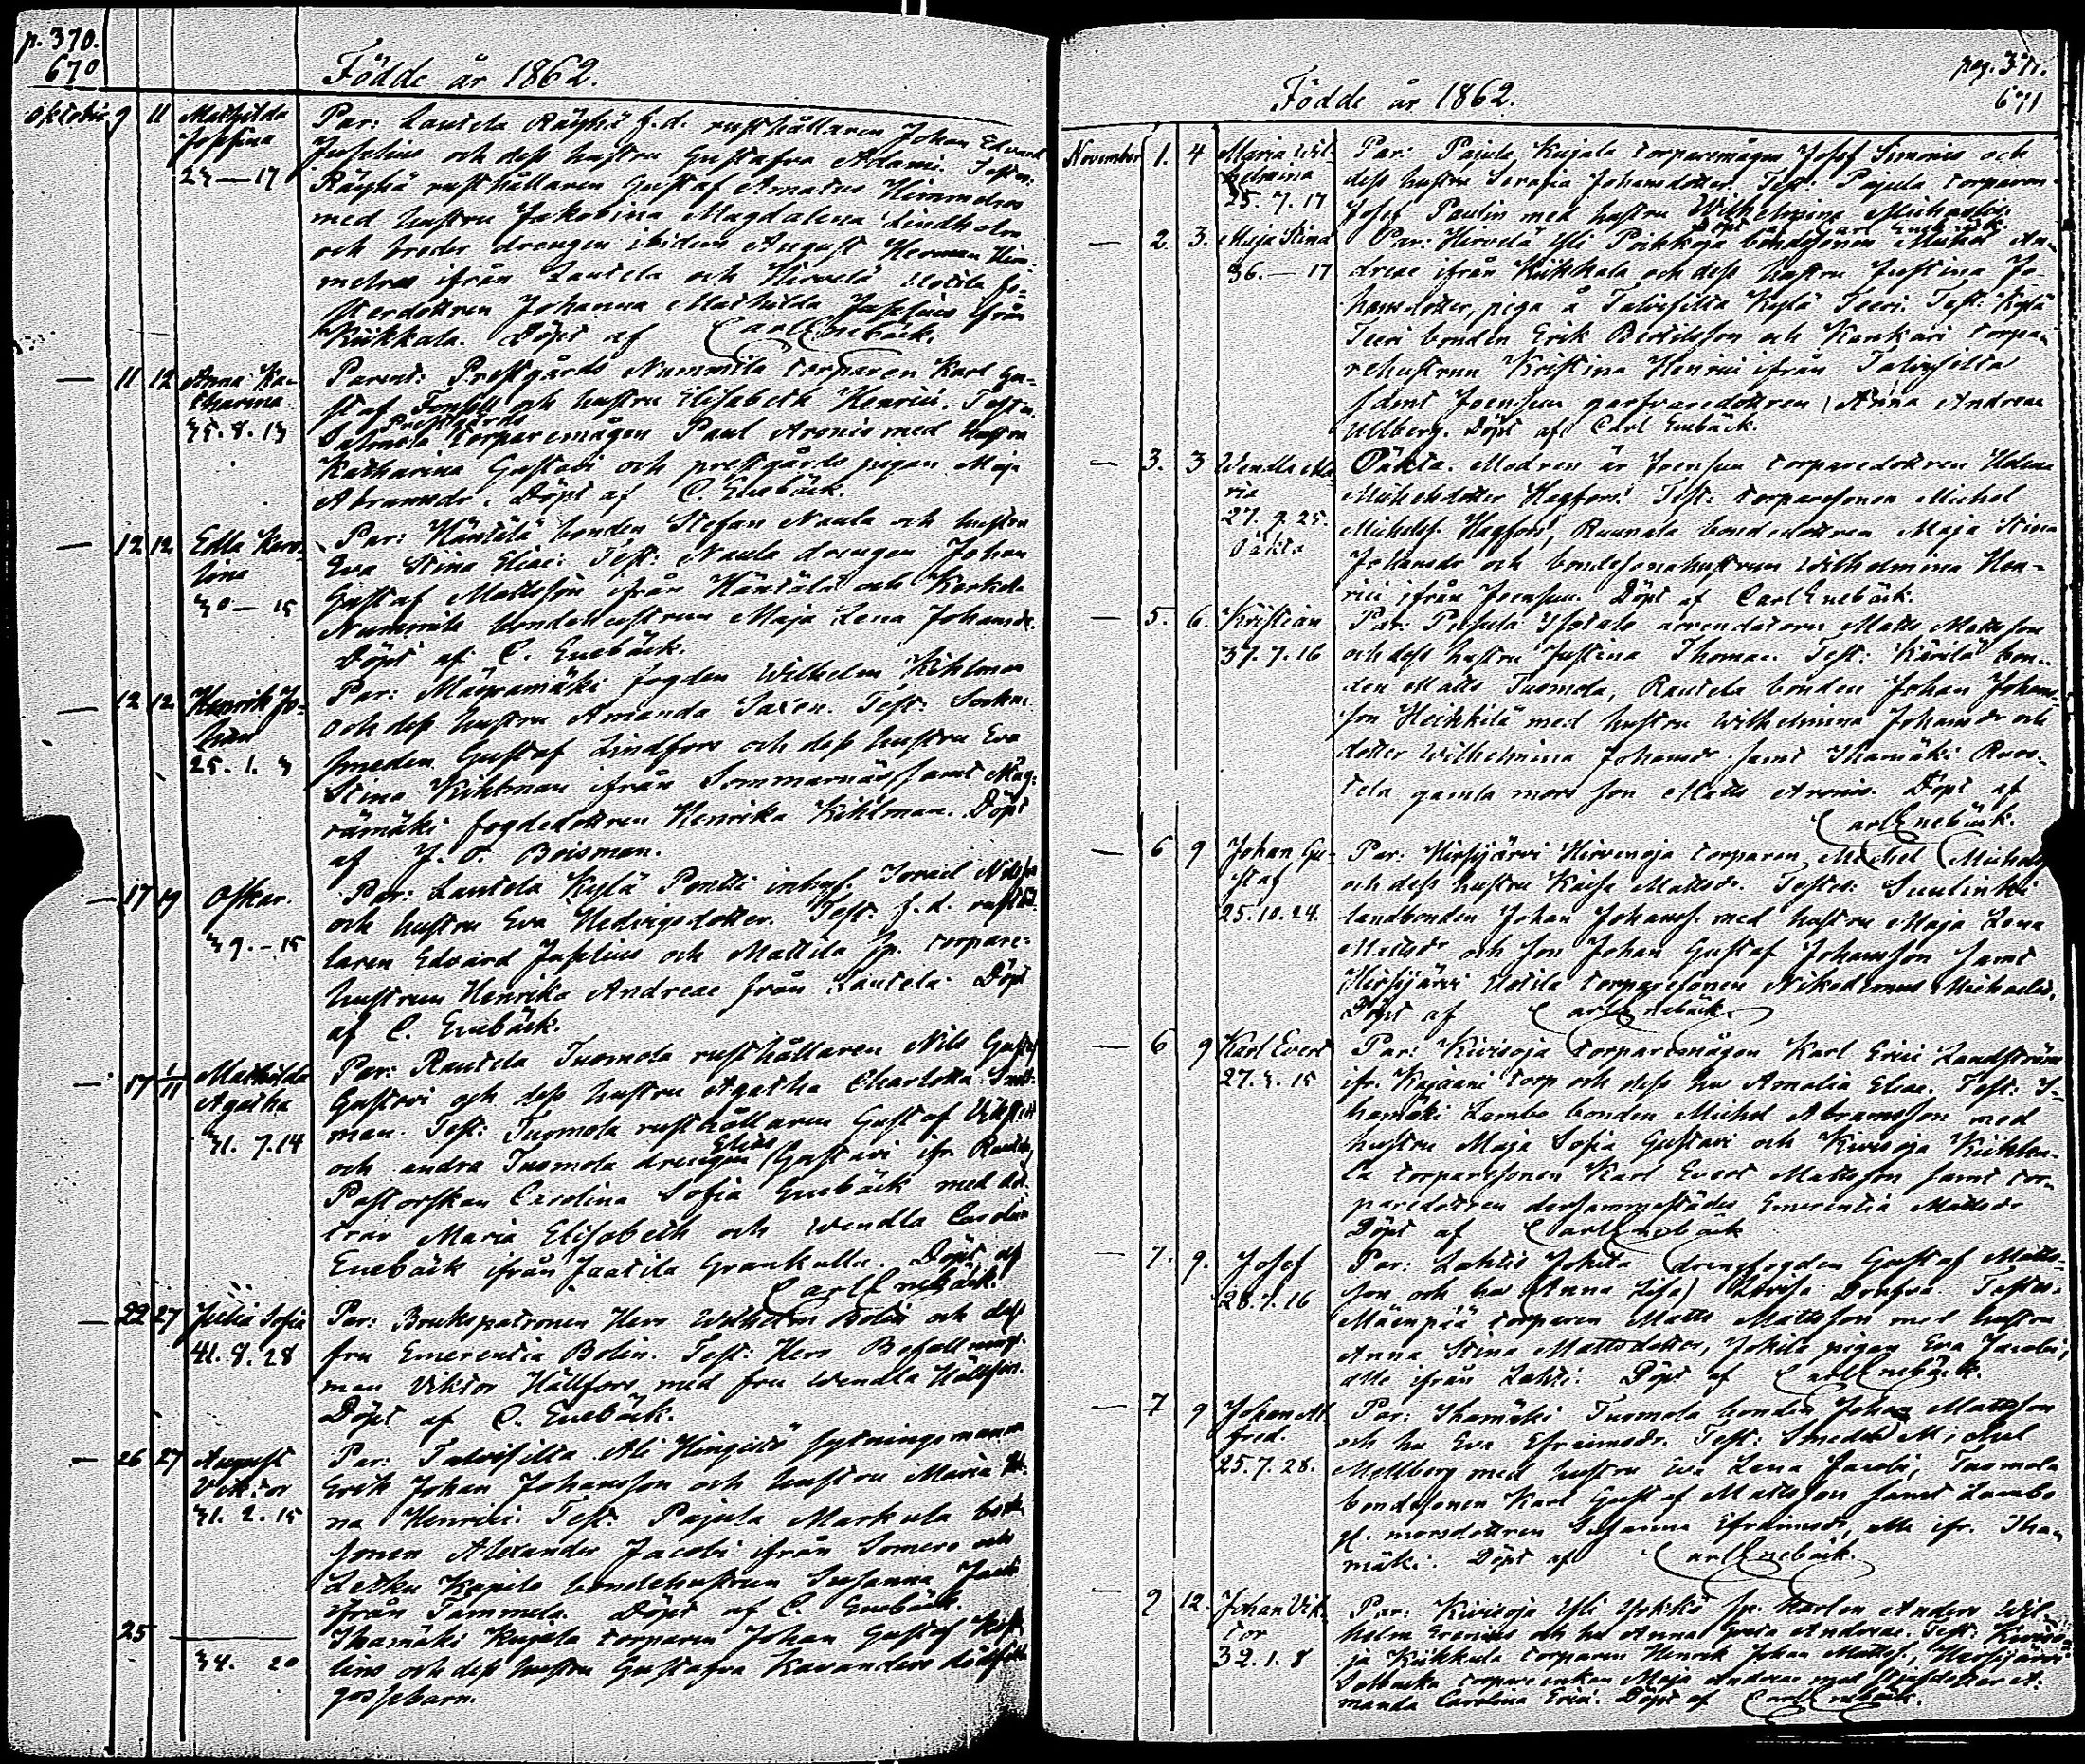 p. 370.
670
Födde år 1862.
Oktober 9 11 Mathilda Josefina 23 — 17
Par: Lautela Räyhä f.d. rusthållaren Johan Edvard
Juselius och dess hustru Gustafva Adami. Testes:
Räyhä rusthållaren Gustaf Amatus Himmelros
med hustru Jakobina Magdalena Lindholm
och broder drengen ibidem August Herman Him-
melros ifrån Lautela och Hirvelä Uotila fo-
sterdottren Johanna Mathilda Juselius ifrån
Kiikkala. Döpt af Carl Enebäck.
— 11 12 Anna Katharina 35. 8. 13
Parent: Prestgårds Nummila torparen Karl Gu-
staf Fonsell och hustru Elisabeth Henrici. Testes.
Prestgårds
Salmela torparemågen Paul Aronis med hustru
Katharina Gustavi och prestgårds pigan Maja
Abramsdr. Döpt af C. Enebäck.
— 12 12 Edla Karolina 30 — 15
Par: Häntälä bonden Stefan Naula och hustru
Eva Stina Eliae. Test: Naula drengen Johan
Gustaf Mattsson ifrån Häntälä och Kerkola
Nummila bondehustrun Maja Lena Johansdr.
Döpt af C. Enebäck.
— 12 12 Henrik Johan 25. 1. 3
Par: Mäyrämäki fogden Wilhelm Kihlman
och dess hustru Amanda Saxen. Test: Sockne
smeden Gustaf Lindfors och dess hustru Eva
Stina Kihlman ifrån Sommarnäs samt Mäy-
rämäki fogdedottren Henrika Kihlman. Döpt
af J. O. Boisman.
— 17 19 Oskar. 39. — 15
Par: Lautela Kylä Pentti inhys. Israel Nilsson
och hustru Eva Hedvigsdotter. Test: f.d. rusthål-
laren Edvard Juselius och Mattila sp. torpare-
hustrun Henrika Andreae från Lautela. Döpt
af C. Enebäck.
— 17 1/11 Mathilda Agatha 31. 7. 14
Par: Rautela Tuomola rusthållaren Nils Gustaf
Gustavi och dess hustru Agatha Charlotta
man. Test: Tuomola rusthållaren Gustaf
Elias
och andra Tuomola drengen Gustavi ifr. Rautela,
Pastorskan Carolina Sofia Enebäck med döt-
trar Maria Elisabeth och Wendla Carolina
Enebäck ifrån Jaatila Grankulla. Döpt af
Carl Enebäck.
— 22 27 Julia Sofia 41. 8. 28
Par: Brukspatronen Herr Wilhelm Bolin och dess
fru Emerentia Bolin. Test: Herr Befallnings-
man Viktor Hällfors med fru Wendla Hällfors.
Döpt af C. Enebäck.
— 26 27 August Viktor 31. 2. 15
Par: Talvisilta Ali Hingistö sytningsmannen
Erik Johan Johansson och hustru Maria
na Henrici. Test: Pajula Markula bonde
sonen Alexander Jacobi ifrån Somero och
Letku Kapilo bondehustrun Susanna Jacobi
ifrån Tammela. Döpt af C. Enebäck.
25 — 34. 20
Ihamäki Kujala torparen Johan Gustaf
lins och dess hustru Gustafva Kavanders dödfödt
gossebarn.
pag. 371.
671
Födde år 1862.
November 1. 4 Maria Wilhelmina 25. 7. 17
Par: Pajula Kujala torparemågen Josef Simonis och
dess hustru Serafia Johansdotter. Test: Pajula torparen
Josef Paulin med hustru Wilhelmina Michaelis.
Döpt af Carl Enebäck.
— 2. 3. Maja Stina 36. — 17
Par: Hirvelä Yli Poikkoja bondesonen Michel An-
dreae ifrån Kiikkala och dess hustru Justina Jo-
hansdotter, piga å Talvisilta Kylä Teeri. Test: Kylä
Teeri bonden Erik Bertilsson och Kankari torpa-
rehustrun Kristina Henrici ifrån Talvisilta
samt Joensuu garfvaredottren Anna Andreae
Ullberg. Döpt af Carl Enebäck.
— 3. 3 Wendla Maria 27. 9. 25. Oäkta
Oäkta. Modren är Joensuu torparedottren Helena
Michelsdotter Hagfors. Test: torparesonen Michel
Michelss. Hagfors, Ruunala bondedottren Maja Stina
Johansdr och bondesonahustrun Wilhelmina Hen-
rici ifrån Joensuu. Döpt af Carl Enebäck.
— 5. 6. Kristian 37. 7. 16
Par: Pusula Isotalo arrendatorn Matts Mattsson
och dess hustru Justina Thomae. Test: Kärilä bon-
den Matts Tuomola, Rautela bonden Johan Johans-
son Heikkilä med hustru Wilhelmina Johansdr och
dotter Wilhelmina Johansdr samt Ihamäki Ruos-
tela gamla mors son Matts Aronis. Döpt af
Carl Enebäck.
— 6 9 Johan Gustaf 25. 10. 24.
Par: Hirsijärvi Hirvenoja torparen Michel Michelss
och dess hustru Kaisa Mattsdr. Testes: Suulinhi
landbonden Johan Johanss. med hustru Maja Lena
Mattsdr och son Johan Gustaf Johansson samt
Hirsijärvi Uotila torparesonen Nikodemus Michaelis.
Döpt af Carl Enebäck.
— 6 9 Karl Evert 27. 3. 15
Par: Kivisoja torparemågen Karl Erici Landström
ifr. Kajaani torp och dess hu Amalia Eliae. Test: I-
hamäki Lambo bonden Michel Abramsson med
hustru Maja Sofia Gustavi och Kivisoja Kiikhu-
la torparesonen Karl Evert Mattsson samt tor-
paredottren dersammastädes Emerentia Mattsdr
Döpt af Carl Enebäck
— 7. 9. Josef 28. 7. 16
Par: Lahtis Jokila drengfogden Gustaf Matts-
son och hu (Anna Lisa) Lovisa Drufva. Testes.
Mäenpää torparen Matts Mattsson med hustru
Anna Stina Mattsdotter, Jokila pigan Eva Jacobi,
alla ifrån Lahti. Döpt af Carl Enebäck.
— 7 9 Johan Alfred. 25. 7. 28.
Par: Ihamäki Tuomola bonden Johan Mattsson
och hu Eva Efraimsdr. Test: Smeden Michel
Mellberg med hustru Eva Lena Jacobi, Tuomola
bondesonen Karl Gustaf Mattsson samt Lambo
gl. morsdottren Susanna Efraimsdr, alla ifr. Iha-
mäki. Döpt af Carl Enebäck.
— 9 12. Johan Viktor 32. 1. 8
Par: Kivisoja Yli Yrkkö sp. karlen Anders Wil-
helm Grenius och hu Anna Greta Andreae. Test: Kiviso-
ja Kiikkula torparen Henrik Johan Mattss., Hirsijärvi
Solbacka torpareenkan Maja Andreae med styfdotter A-
manda Carolina Erici. Döpt af Carl Enebäck.